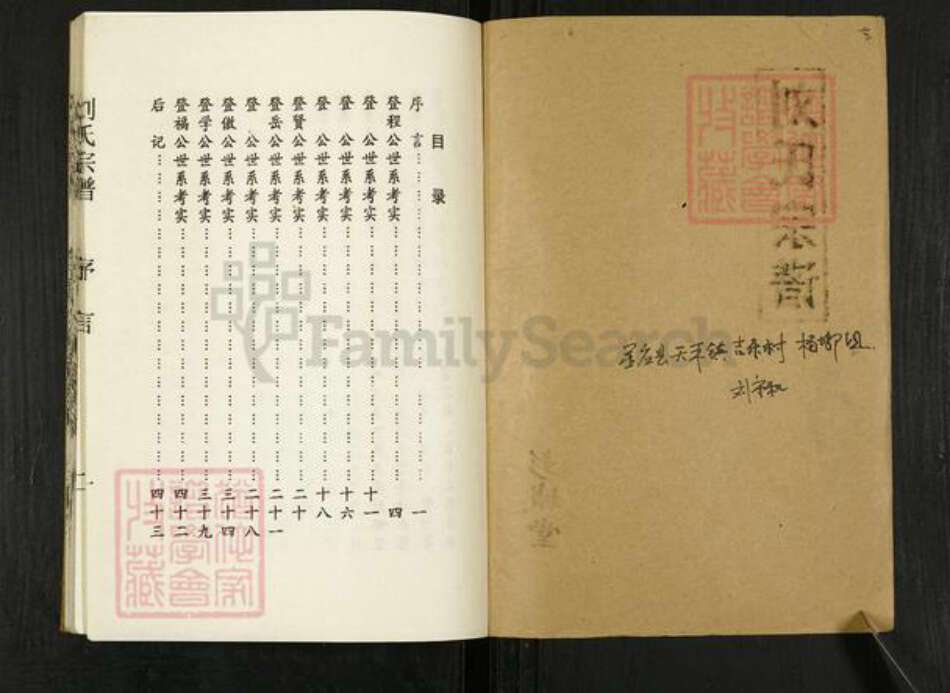 刘守和
目录
序言 一
登程公世系考实 四
登 公世系考实 十一
登 公世系考实 十六
登 公世系考实 十八
登贤公世系考实 二十
登岳公世系考实 二十一
登 公世系考实 二十八
登傲公世系考实 三十四
登学公世系考实 三十九
登福公世系考实 四十二
后记 四十三
刘氏宗谱 序言
FamilySearch